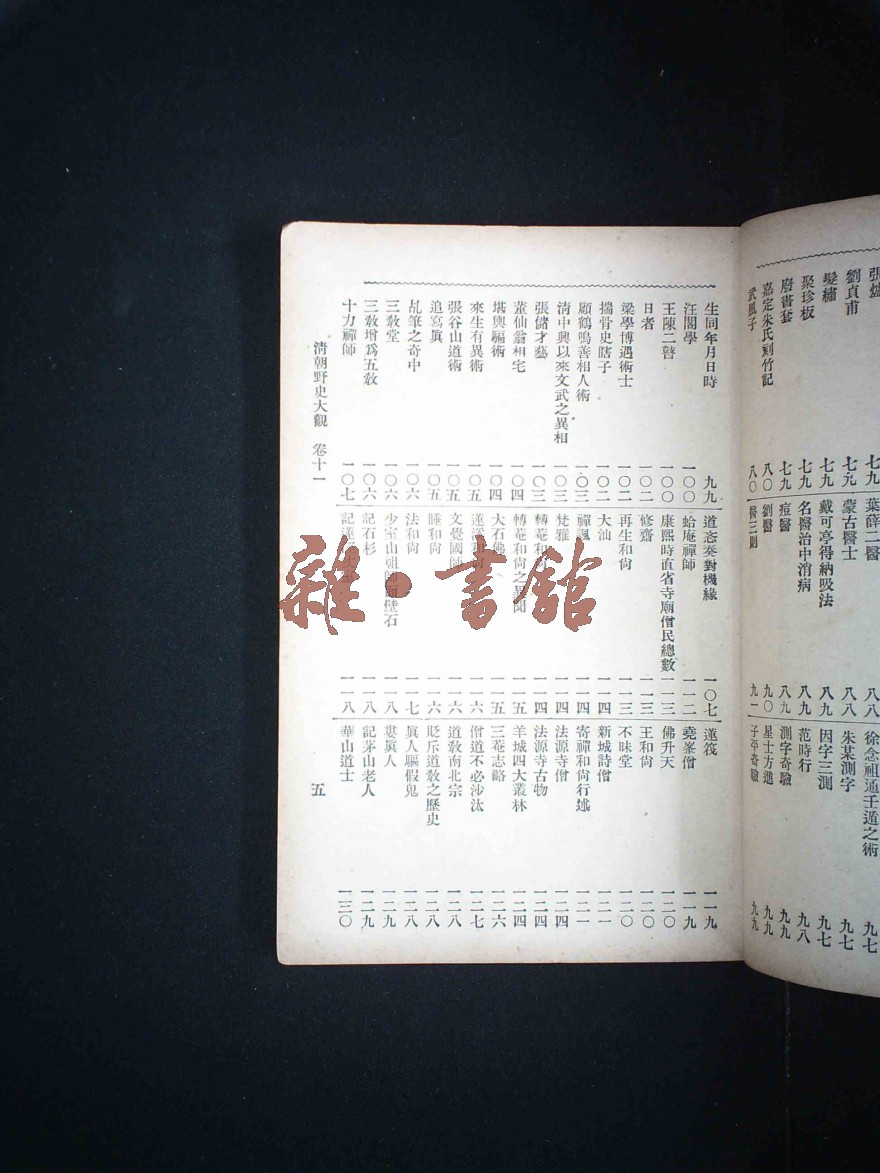 張
劉貞甫 七九
髮繡 七九
聚珍板 七九
廢書套 七九
嘉定朱氏刻竹記 八〇
武風子 八〇
葉薛二醫 八八
蒙古醫士 八八
戴可亭得納吸法 八九
名醫治中消病 八九
痘醫 八九
劉醫 九〇
醫三則 九一
徐念祖通壬遁之術 九七
朱某測字 九七
因字三測 九七
范時行 九八
測字奇驗 九九
星士方進 九九
子平奇驗 九九
生同年月日時 九九
汪閣學 一〇〇
王陳二瞽 一〇〇
日者 一〇二
梁學博遇術士 一〇二
揣骨史瞎子 一〇二
顧鶴鳴善相人術 一〇三
清中興以來文武之異相 一〇三
張儲才藝 一〇三
董仙翁相宅 一〇四
堪輿驅術 一〇四
來生有異術 一〇五
張谷山道術 一〇五
追寫眞 一〇五
乩筆之奇中 一〇六
三敎堂 一〇六
三敎增爲五敎 一〇六
十力禪師 一〇七
道忞奏對機緣 一〇七
蛤庵禪師 一一二
康熙時直省寺廟僧民總數 一一三
修齋 一一三
再生和尙 一一三
大汕 一一四
禪諷 一一四
梵雅 一一四
轉菴和尙 一一四
轉菴和尙之異聞 一一五
大石佛 一一五
蓮 和尙 一一六
文覺國師 一一六
睡和尙 一一六
法和尙 一一七
少室山祖師面壁石 一一八
記石杉 一一八
記蓮 大師 一一八
蓮筏 一一九
堯峯僧 一一九
佛升天 一二〇
王和尙 一二〇
不昧堂 一二〇
新城詩僧 一二一
寄禪和尙行述 一二一
法源寺僧 一二四
法源寺古物 一二四
羊城四大叢林 一二四
三菴志略 一二六
僧道不必沙汰 一二七
道敎南北宗 一二八
貶斥道敎之歷史 一二八
眞人驅假鬼 一二八
婁眞人 一二九
記茅山老人 一二九
華山道士 一三〇
清朝野史大觀 卷十一
五
雜·書館